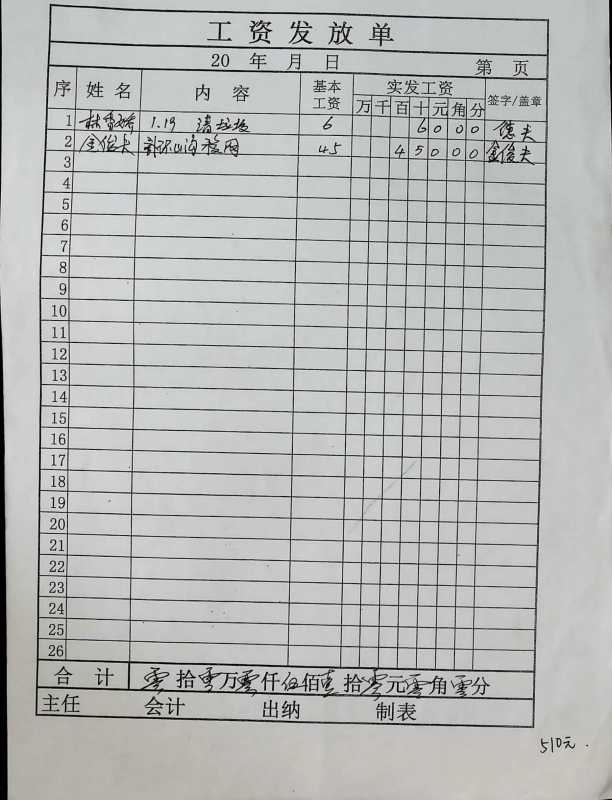 工资发放单
20 年 月 日 第 页
序 姓名 内容 基本工资 实发工资 万 千 百 十 元 角 分 签字/盖章
1 林 1.19 清垃圾 6 6 0 0 0 德夫
2 金俊夫 45 4 5 0 0 0 金俊夫
3
4
5
6
7
8
9
10
11
12
13
14
15
16
17
18
19
20
21
22
23
24
25
26
合计 零拾零万零仟伍佰壹拾零元零角零分
主任 会计 出纳 制表
510元.